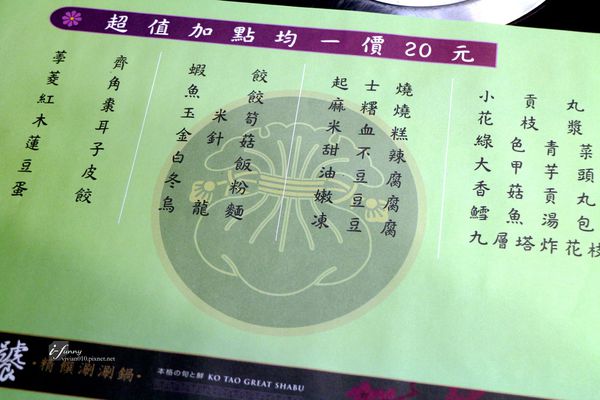 超值加點均一價20元
荸齊
菱角
紅棗
木耳
蓮子
豆皮
蛋餃
蝦餃
魚餃
玉米筍
金針菇
白飯
冬粉
烏龍麵
起士燒
麻糬燒
米血糕
甜不辣
油豆腐
嫩豆腐
凍豆腐
小貢丸
花枝漿
綠色青菜
大甲芋頭
香菇貢丸
鱈魚湯包
九層塔炸花枝
i-funny
vivian010.pixnet.net
精饌涮涮鍋
本格の旬と鮮 KO TAO GREAT SHABU